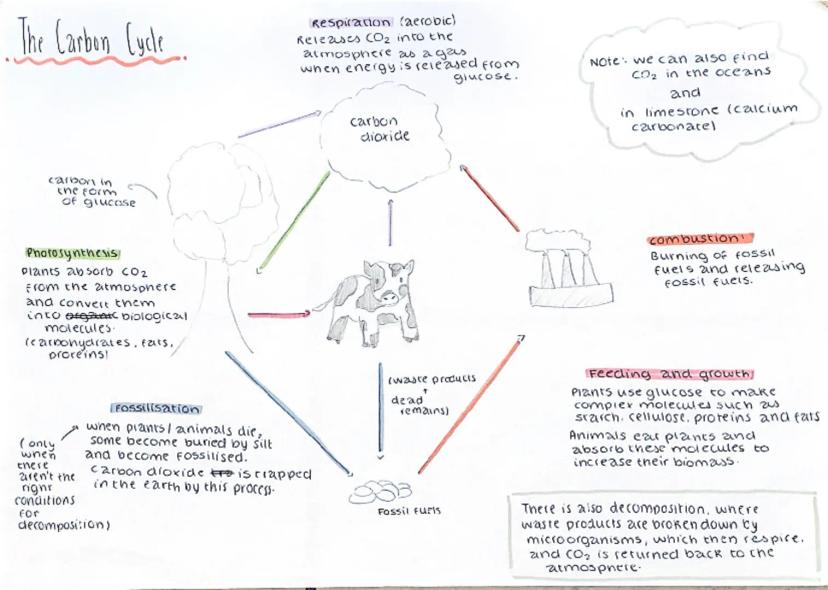 The Carbon Cycle
Respiration (aerobic)
Releases CO₂ into the
atmosphere as a gas
when energy is released from
glucose.
Note: we can also find
CO₂ in the oceans
and
in limestone (calcium
carbonate)
carbon
dioxide
carbon in
the form
of glucose
Photosynthesis
Plants absorb CO₂
from the atmosphere
and convert them
into organic biological
molecules.
(carbohydrates, fats,
proteins)
combustion:
Burning of fossil
fuels and releasing
fossil fuels.
(waste products
+
dead
remains)
Feeding and growth
Plants use glucose to make
complex molecules such as
starch, cellulose, proteins and fats
Animals eat plants and
absorb these molecules to
increase their biomass.
Fossilisation
when plants/animals die,
some become buried by silt
and become fossilised.
carbon dioxide is trapped
in the earth by this process.
(only
when
there
aren't the
right
conditions
for
decomposition)
Fossil fuels
There is also decomposition, where
waste products are broken down by
microorganisms, which then respire,
and CO₂ is returned back to the
atmosphere.